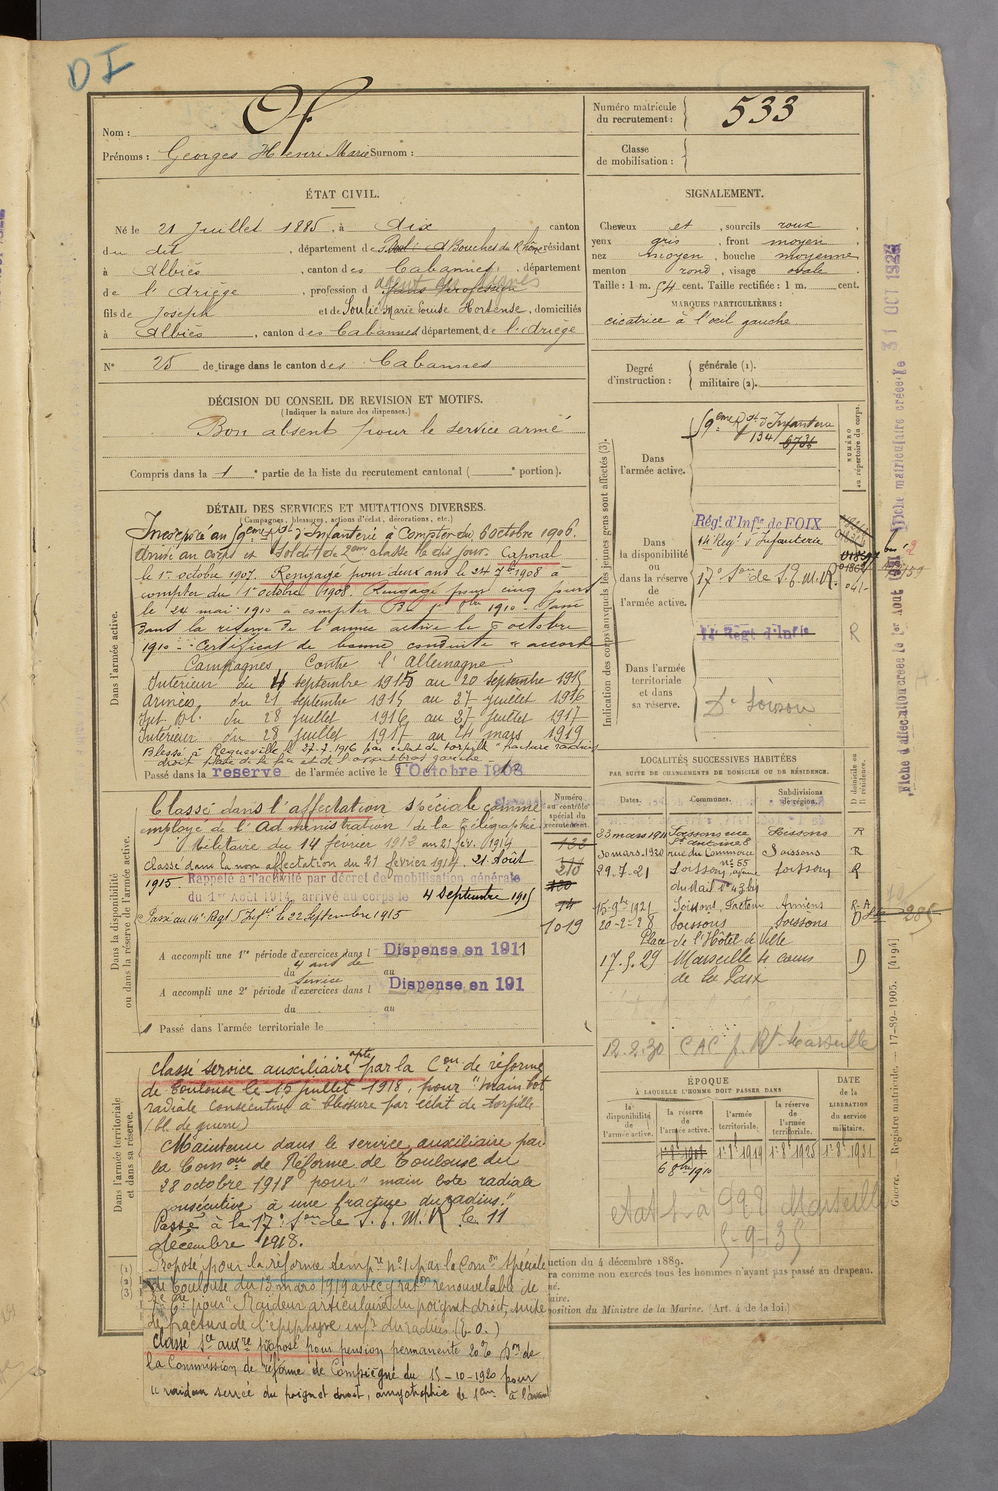 D I
Nom : Of
Prénoms : Georges Henri Marie Surnom :
Numéro matricule du recrutement : 533
Classe de mobilisation :
ÉTAT CIVIL.
Né le 21 Juillet 1885, à Aix canton
du dit, département des Bouches du Rhône résidant
à Albiès, canton des Cabannes, département
de l'Ariège, profession d
fils de Joseph et de Soulié Marie Louise Hortense, domiciliés
à Albiès, canton des Cabannes département de l'Ariège
N° 25 de tirage dans le canton des Cabannes
SIGNALEMENT.
Cheveux et, sourcils roux
yeux gris, front moyen
nez moyen, bouche moyenne
menton rond, visage ovale
Taille : 1 m. 54 cent. Taille rectifiée : 1 m. cent.
MARQUES PARTICULIÈRES :
cicatrice à l'œil gauche
Degré d'instruction : générale (1).
militaire (2).
DÉCISION DU CONSEIL DE REVISION ET MOTIFS.
(Indiquer la nature des dispenses.)
Bon absent pour le service armé
Compris dans la 1e partie de la liste du recrutement cantonal ( e portion).
DÉTAIL DES SERVICES ET MUTATIONS DIVERSES.
(Campagnes, blessures, actions d'éclat, décorations, etc.)
Dans l'armée active.
Incorporé au 59eme Rgt d'Infanterie à Compter du 6 octobre 1906.
Arrivé au corps et soldat de 2eme classe le dit jour. Caporal
le 1er octobre 1907. Rengagé pour deux ans le 24 7bre 1908 à
compter du 1er octobre 1908. Rengagé pour cinq jours
le 24 mai 1910 à compter du 1er 8bre 1910. Passé
dans la réserve de l'armée active le 6 octobre
1910. Certificat de bonne conduite "accordé"
Campagnes Contre l'Allemagne
Intérieur du 4 septembre 1915 au 20 septembre 1915
Armées du 21 septembre 1915 au 27 juillet 1916
Int. Bl. du 28 juillet 1916 au 27 juillet 1917
Intérieur du 28 juillet 1917 au 24 mars 1919
Blessé à Regneville le 27-7-1916 par éclat de torpille "fracture radius
droit
Passé dans la réserve de l'armée active le 1er Octobre 1908
Indication des corps auxquels les jeunes gens sont affectés (3).
NUMÉRO au répertoire du corps.
Dans l'armée active.
59eme Rgt d'Infanterie
134 6736
Dans la disponibilité ou dans la réserve de l'armée active.
Régt d'Infie de FOIX
14e Regt d'Infanterie
17e Son de S.E.M.R.
Dans l'armée territoriale et dans sa réserve.
14e Regt d'Infie
R
Dt Soissons
Fiche d'affectation créée le 1er Août 1931
Fiche matriculaire créée le 31 OCT 1925
Dans la disponibilité ou dans la réserve de l'armée active.
Classé dans l'affectation spéciale comme
employé de l'Administration de la Télégraphie
Militaire du 14 février 1913 au 21 fév. 1914
Classé dans la non affectation du 21 février 1914. 21 Août
1915. Rappelé à l'activité par décret de mobilisation générale
du 1er Août 1914, arrivé au corps le 4 Septembre 1915
Passé au 14e Regt d'Infie le 22 Septembre 1915
A accompli une 1re période d'exercices dans l Dispense en 1911
4 ans de service
du au
A accompli une 2e période d'exercices dans l Dispense en 191
du au
Passé dans l'armée territoriale le
Numéro au contrôle spécial du recrutement.
210
74
1019
LOCALITÉS SUCCESSIVES HABITÉES
PAR SUITE DE CHANGEMENTS DE DOMICILE OU DE RÉSIDENCE.
Dates. Communes. Subdivisions de région. D domicile ou R résidence.
23 mars 1911 Soissons rue St Antoine 8 Soissons R
30 mars 1920 rue du Commerce n° 55 Soissons R
29.7.21 Soissons Soissons R
15-9bre 1921 Soissons, Amiens R-A
20-2-28 Soissons Place de l'Hôtel de Ville Soissons D
17.5.29 Marseille 4 cours de la Paix D
12.2.30 CAC p. Rt Marseille
285
ÉPOQUE À LAQUELLE L'HOMME DOIT PASSER DANS
DATE de la LIBÉRATION du service militaire.
la disponibilité de l'armée active.
la réserve de l'armée active.
l'armée territoriale.
la réserve de l'armée territoriale.
6 8bre 1910
1er 8e 1919
1er 8e 1925
1er 8e 1931
à 998 Marseille
5-9-35
Dans l'armée territoriale et dans sa réserve.
Classé service auxiliaire apte par la Con de réforme
de Toulouse le 15 juillet 1918, pour "main bot
radiale consécutive à blessure par éclat de torpille
(bl. de guerre)
Maintenu dans le service auxiliaire par
la Comon de Réforme de Toulouse du
28 octobre 1918 pour "main bote radiale
consécutive à une fracture du radius."
Passé à la 17e Son de S.E.M.R le 11
décembre 1918.
Proposé pour la réforme tempre n°1 par la Comon spéciale
de Toulouse du 13 mars 1919 avec graton renouvelable de
pour "Raideur articulaire du poignet droit, suite
de fracture de l'épiphyse infre du radius (E.O.)
Classé Sce auxre proposé pour pension permanente 20% Don de
la Commission de réforme de Compiègne du 15-10-1920 pour
raideur serrée du poignet droit, amyotrophie de 1cm à l'avant
(1)
(2)
(3)
uction du 4 décembre 1889.
ra comme non exercés tous les hommes n'ayant pas passé au drapeau.
position du Ministre de la Marine. (Art. 4 de la loi.)
Guerre. — Registre matricule. — 17-89-1905. [4194]